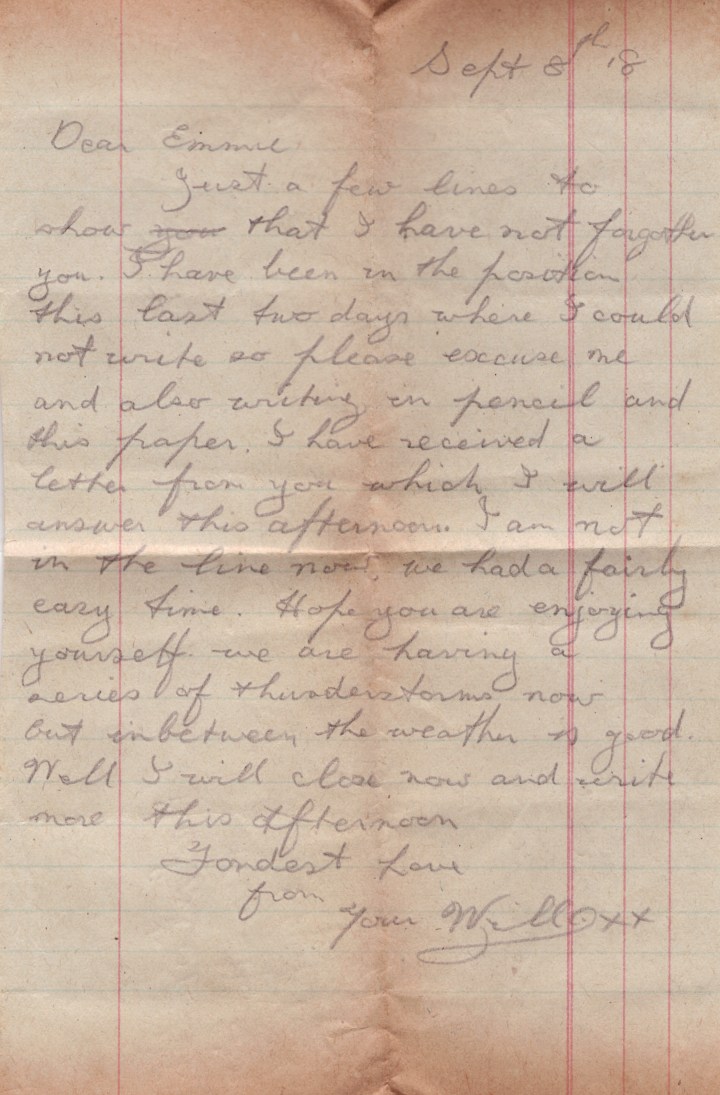 Sept 8th 18
Dear Emmie
Just a few lines to
show you that I have not forgotten
you. I have been in the position
this last two days where I could
not write so please excuse me
and also writing in pencil and
this paper. I have received a
letter from you which I will
answer this afternoon. I am not
in the line now, we had a fairly
easy time. Hope you are enjoying
yourself. we are having a
series of thunderstorms now
but inbetween the weather is good.
Well I will close now and write
more this afternoon
Fondest Love
from
Your Will xx